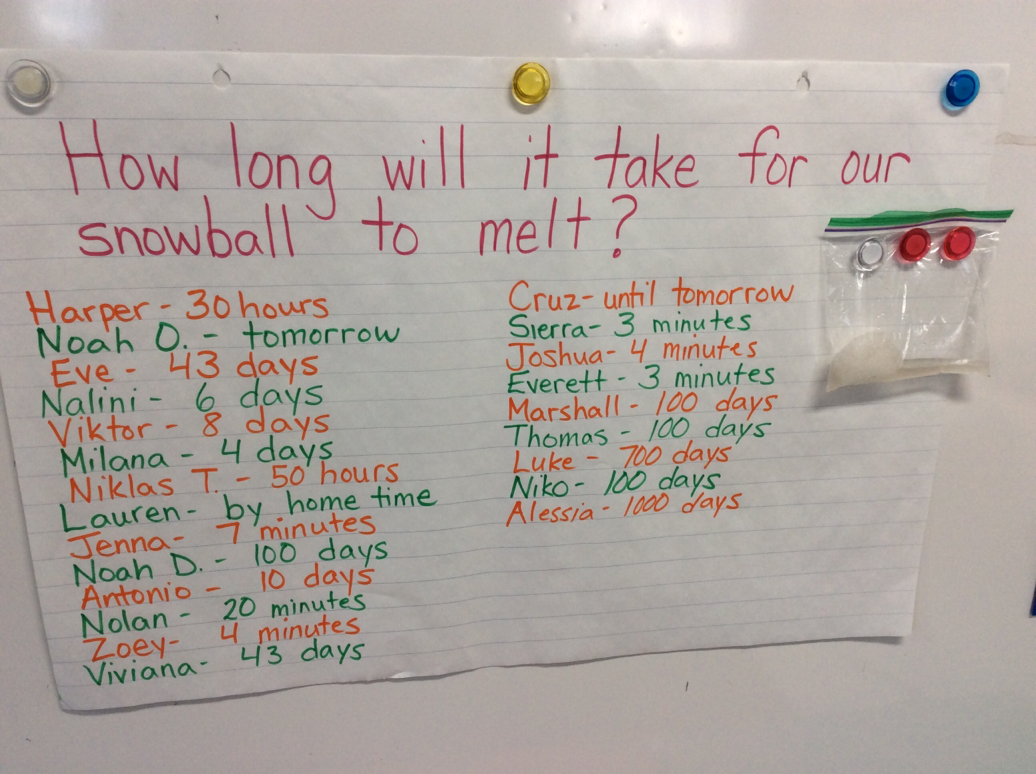 How long will it take for our
snowball to melt?
Harper - 30 hours
Noah O. - tomorrow
Eve - 43 days
Nalini - 6 days
Viktor - 8 days
Milana - 4 days
Niklas T. - 50 hours
Lauren - by home time
Jenna - 7 minutes
Noah D. - 100 days
Antonio - 10 days
Nolan - 20 minutes
Zoey - 4 minutes
Viviana - 43 days
Cruz - until tomorrow
Sierra - 3 minutes
Joshua - 4 minutes
Everett - 3 minutes
Marshall - 100 days
Thomas - 100 days
Luke - 700 days
Niko - 100 days
Alessia - 1000 days